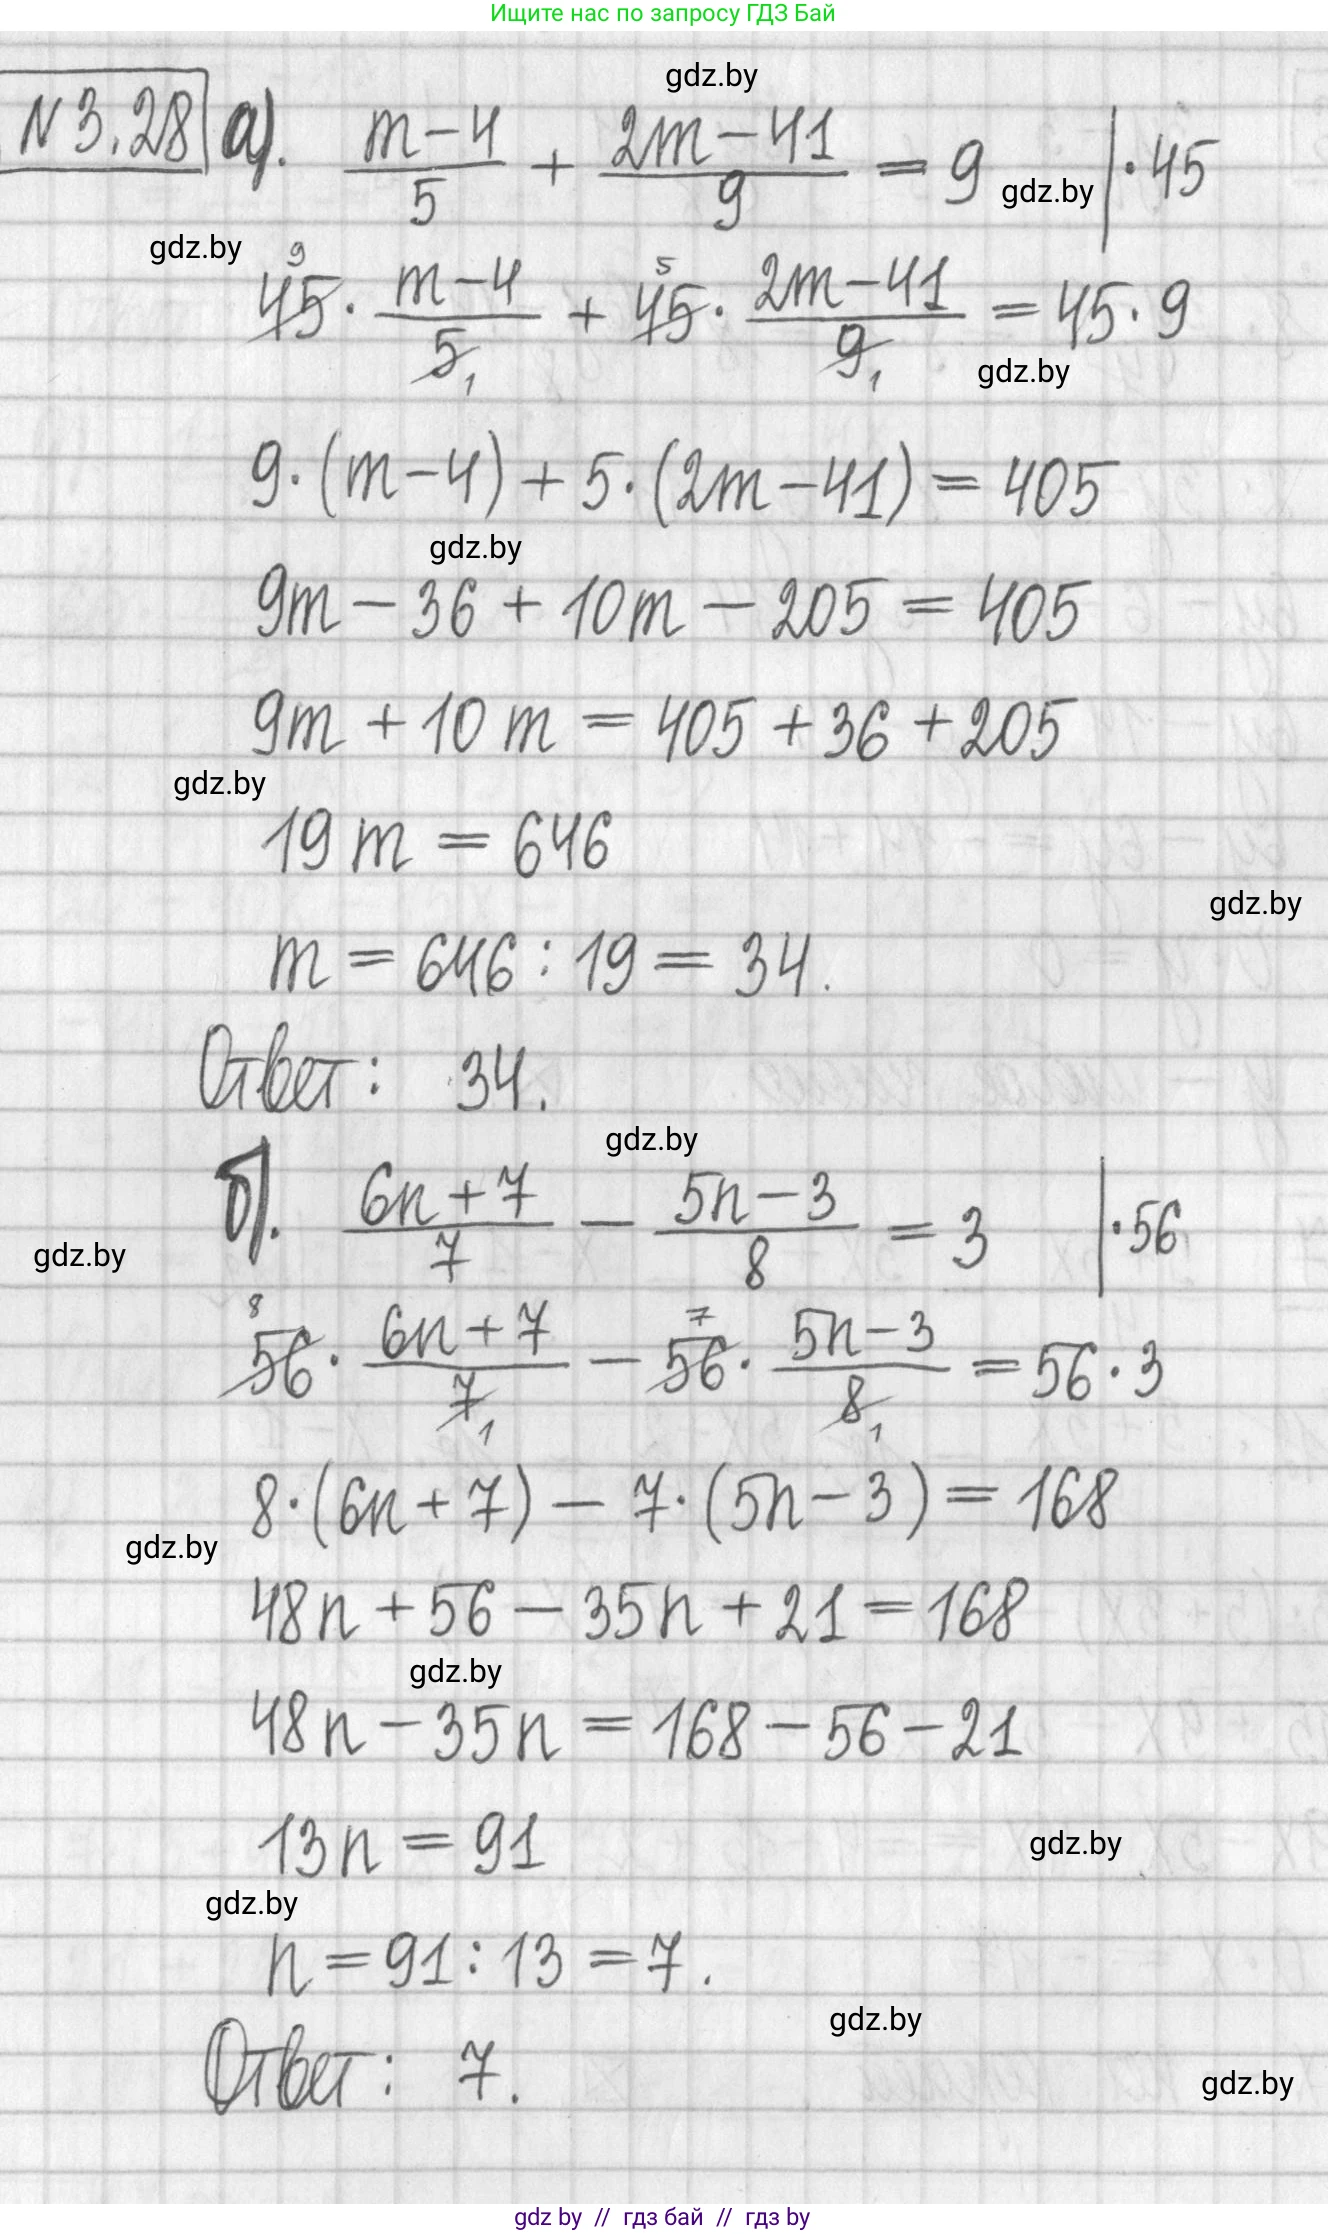 Ищите нас по запросу ГДЗ Бай
gdz.by
N 3.28 а). (m-4)/5 + (2m-41)/9 = 9 | ·45
gdz.by
gdz.by
45⁹ · (m-4)/5₁ + 45⁵ · (2m-41)/9₁ = 45·9
gdz.by
9·(m-4)+5·(2m-41)=405
gdz.by
9m-36+10m-205=405
9m+10m=405+36+205
gdz.by
19m=646
gdz.by
m=646:19=34.
Ответ: 34.
gdz.by
б). (6n+7)/7 - (5n-3)/8 = 3 | ·56
gdz.by
56⁸ · (6n+7)/7₁ - 56⁷ · (5n-3)/8₁ = 56·3
8·(6n+7)-7·(5n-3)=168
gdz.by
48n+56-35n+21=168
gdz.by
48n-35n=168-56-21
13n=91
gdz.by
gdz.by
n=91:13=7.
gdz.by
Ответ: 7.
gdz.by
gdz by // гдз бай // гдз by